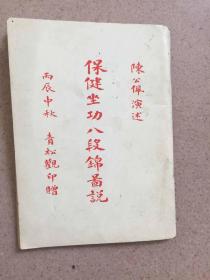 陳公佩演述
保健坐功八段錦啚説
丙辰中秋 青松觀印贈